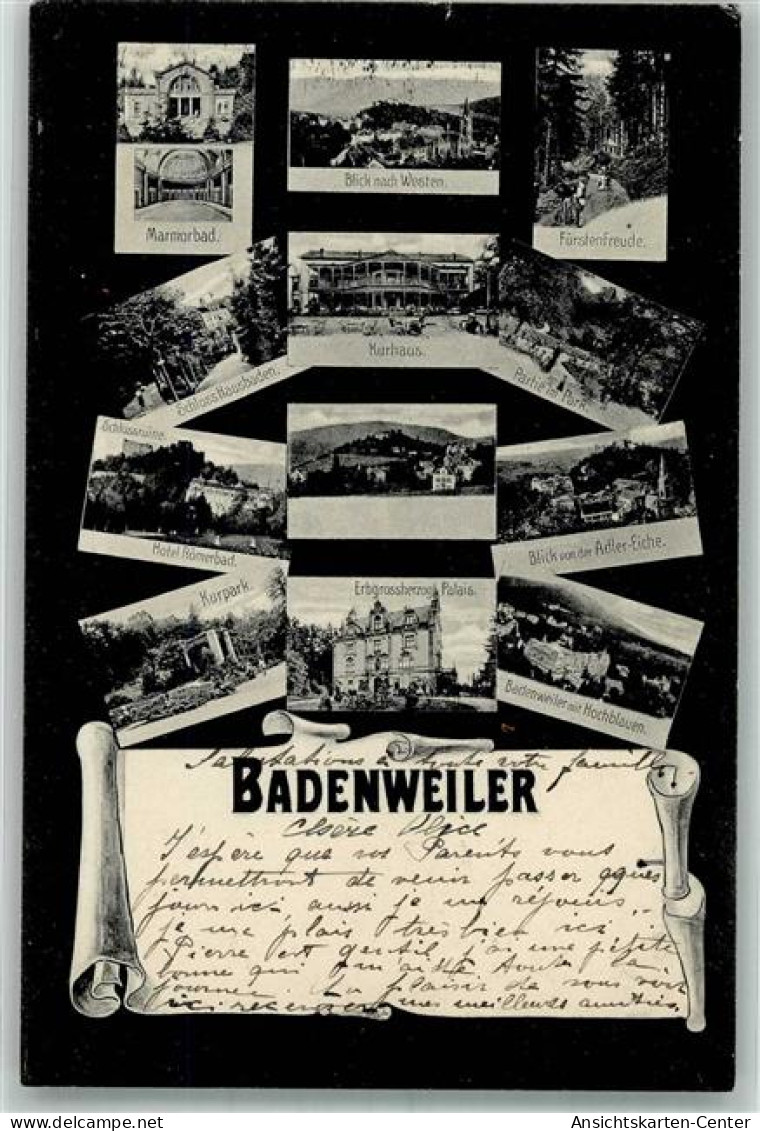 Marmorbad.
Blick nach Westen.
Fürstenfreude.
Schloss Hausbaden.
Kurhaus.
Partie im Park.
Schlossruine.
Hotel Römerbad.
Blick von der Adler-Eiche.
Kurpark.
Erbgrossherzogl. Palais.
Badenweiler mit Hochblauen.
Salutations à toute votre famille
BADENWEILER
Chère Alice
J'espère que vos Parents vous
permettront de venir passer qques
jours ici, aussi je me réjouis..
je me plais très bien ici.
Pierre est gentil, j'ai une petite
bonne qui m'aide toute la
journée. Au plaisir de vous voir
ici recevez mes meilleures amitiés.
Ansichtskarten-Center